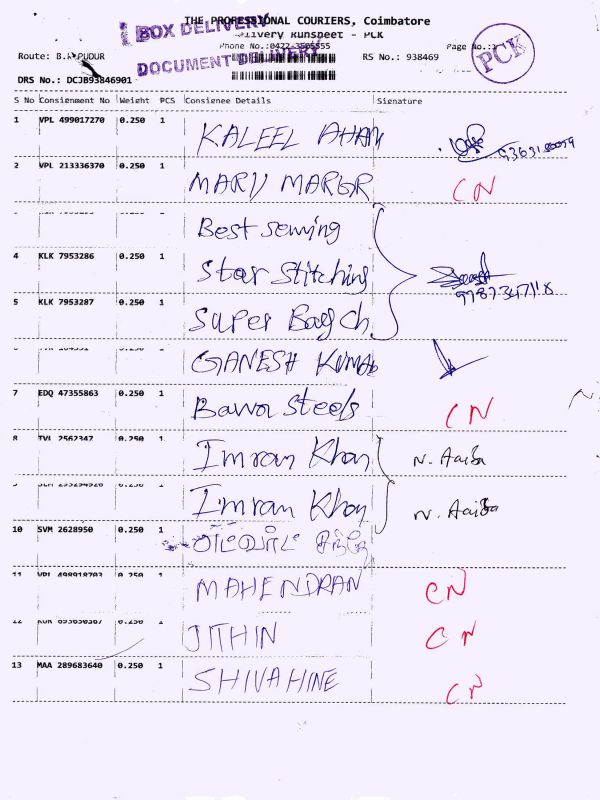 THE PROFESSIONAL COURIERS, Coimbatore
BOX DELIVERY
Delivery Runsheet - PCK
Phone No.:0422-3505555
Page No.:1
Route: B.K PUDUR
DOCUMENT DELIVERY
RS No.: 938469
PCK
DRS No.: DCJB93846901
S No Consignment No Weight PCS Consignee Details Signature
1 VPL 499017270 0.250 1 KALEEL AHAM
2 VPL 213336370 0.250 1 MARY MARGR CN
Best Sewing
4 KLK 7953286 0.250 1 Star Stitching
5 KLK 7953287 0.250 1 Super Bag Ch
GANESH KUMAR
7 EDQ 47355863 0.250 1 Bawa Steels CN
8 TVL 2562347 0.250 1 Imran Khan N. Aaiba
Imran Khan N. Aaiba
10 SVM 2628950 0.250 1
11 VPL 498918703 0.250 1 MAHENDRAN CN
12 0.250 1 JITHIN CN
13 MAA 289683640 0.250 1 SHIVAHINE CN